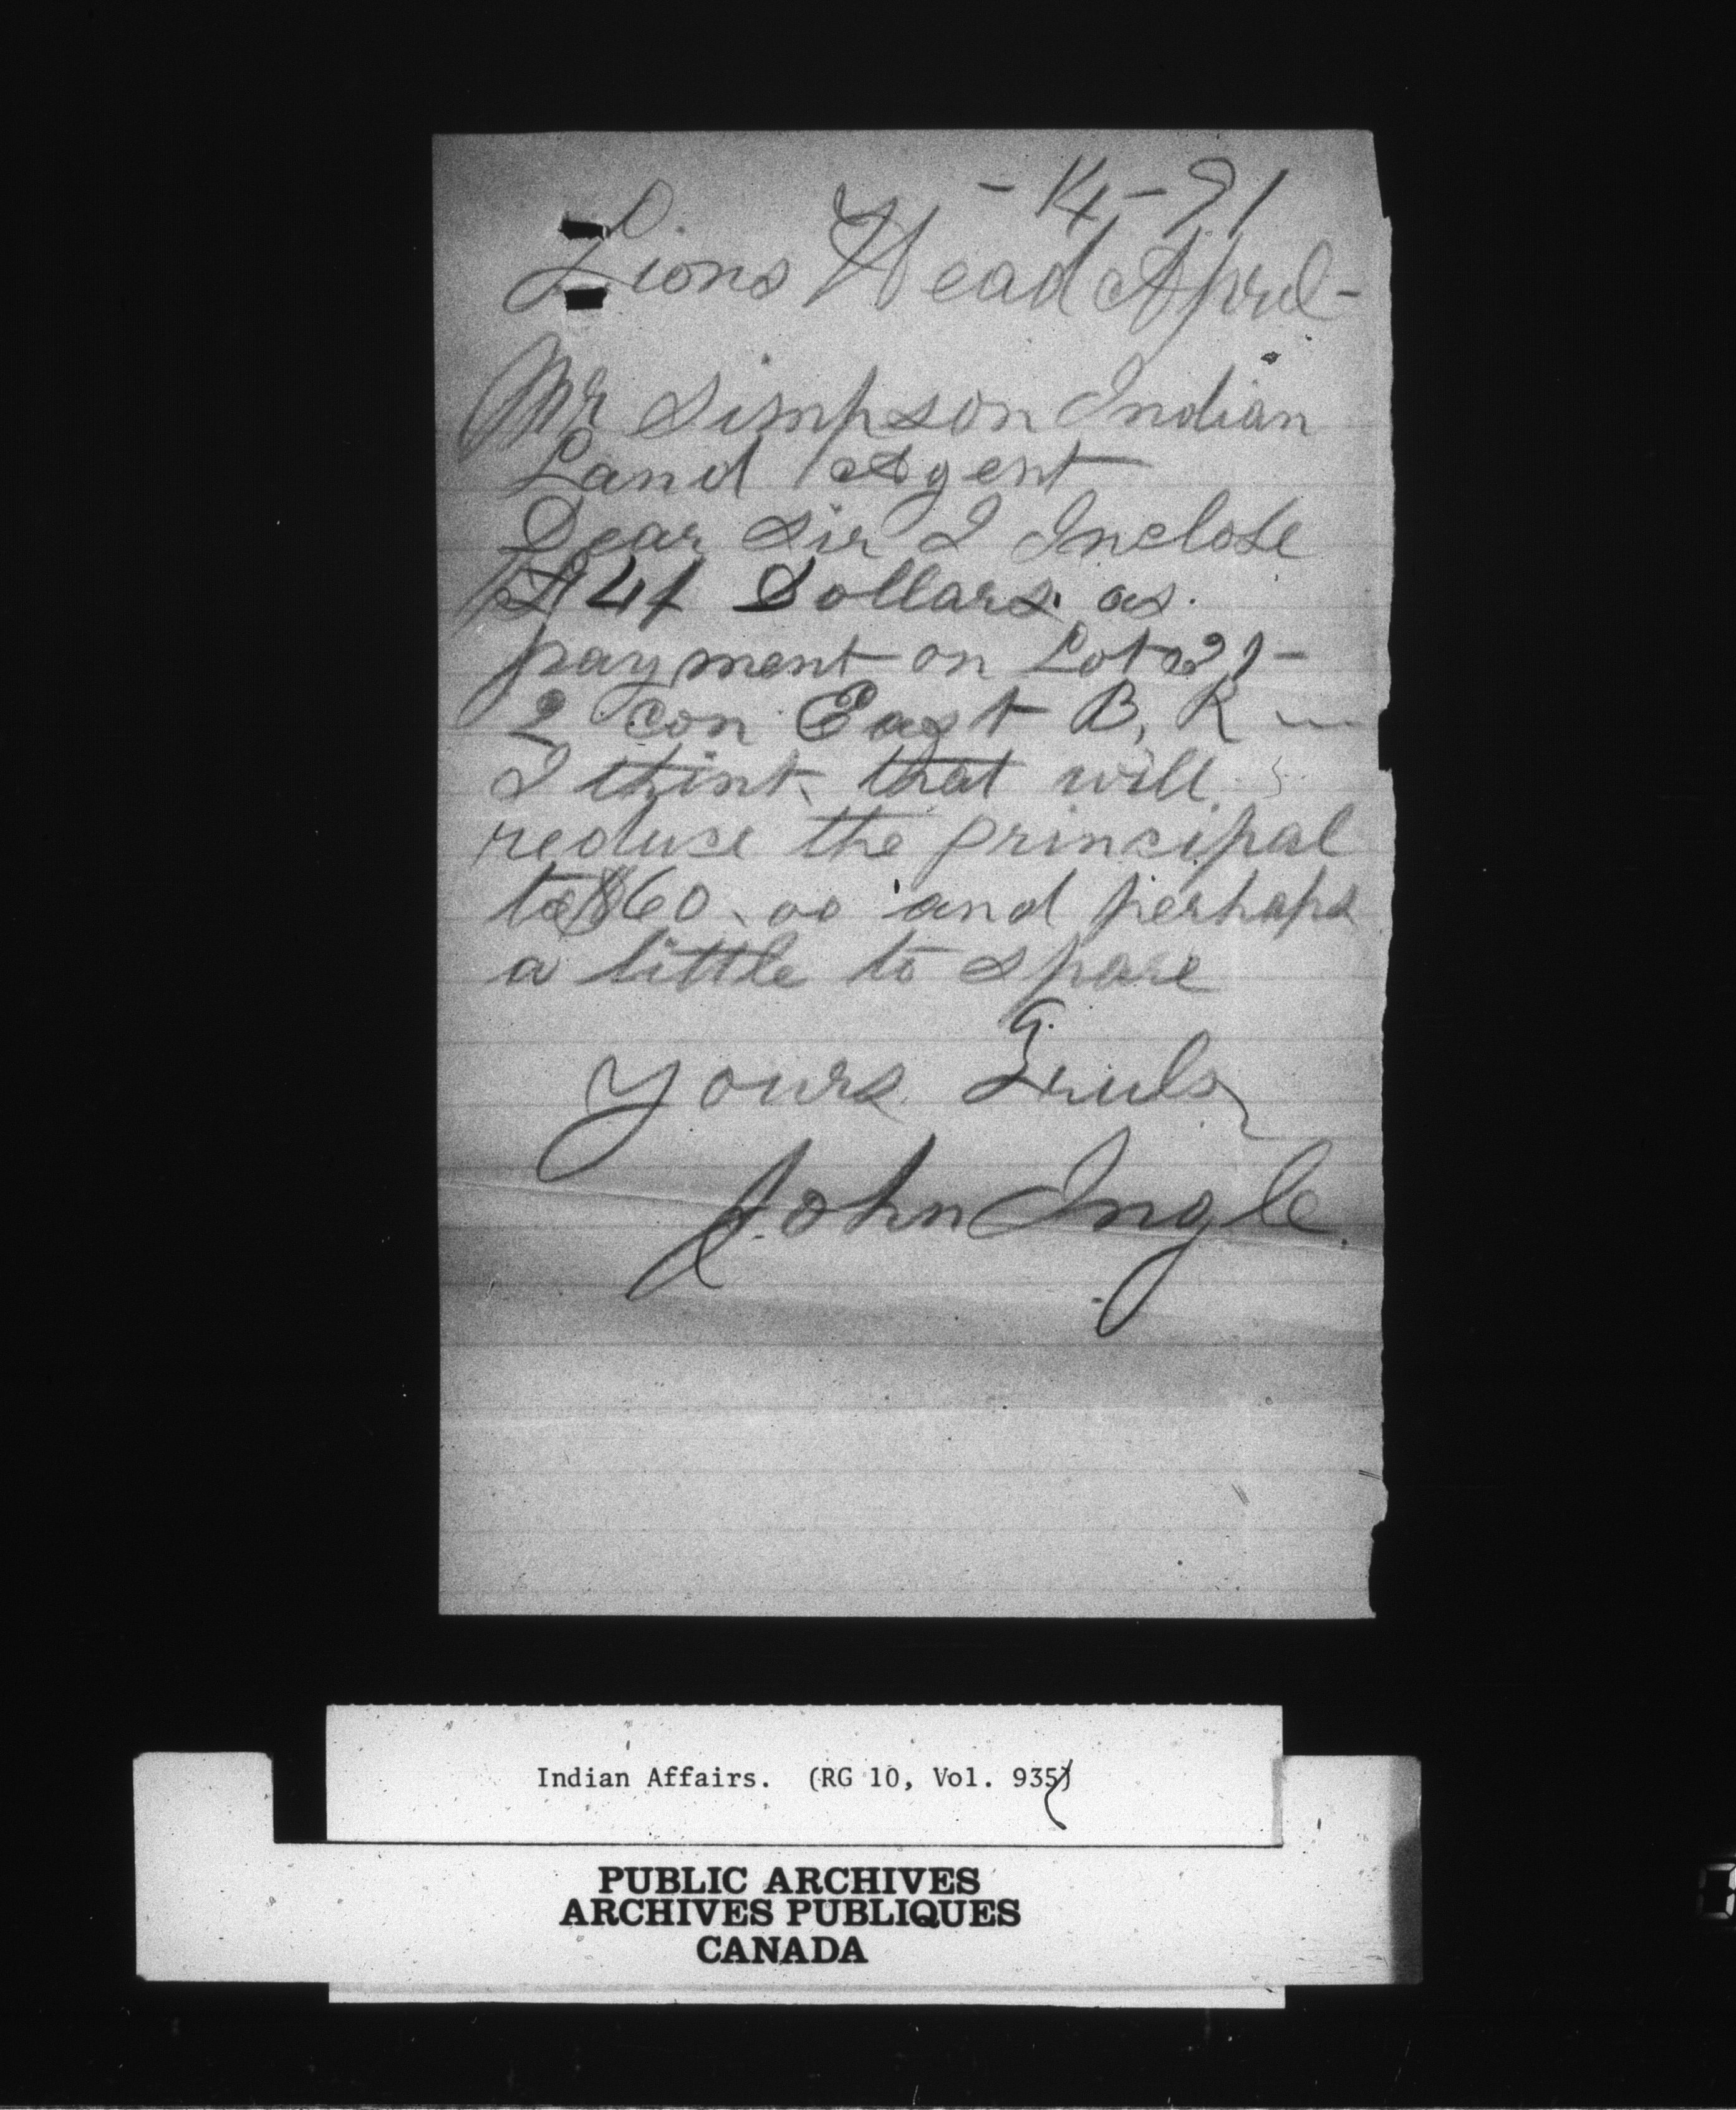 - 14 - 91
Lions Head April -
Mr Simpson Indian
Land Agent
Dear Sir I Inclose
$41 Dollars as
payment on Lot 21 -
2 con East B, R
I think that will
reduse the principal
to $60.00 and perhaps
a little to spare
yours Truly
John Ingle
Indian Affairs. (RG 10, Vol. 935)
PUBLIC ARCHIVES
ARCHIVES PUBLIQUES
CANADA